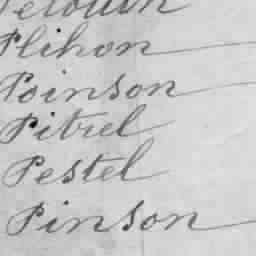 Plihon
Poinson
Pitrel
Pestel
Pinson